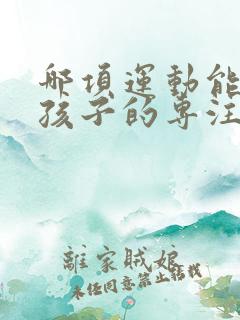 哪項運動能
孩子的專注
離家賊娘
未经同意禁止转载